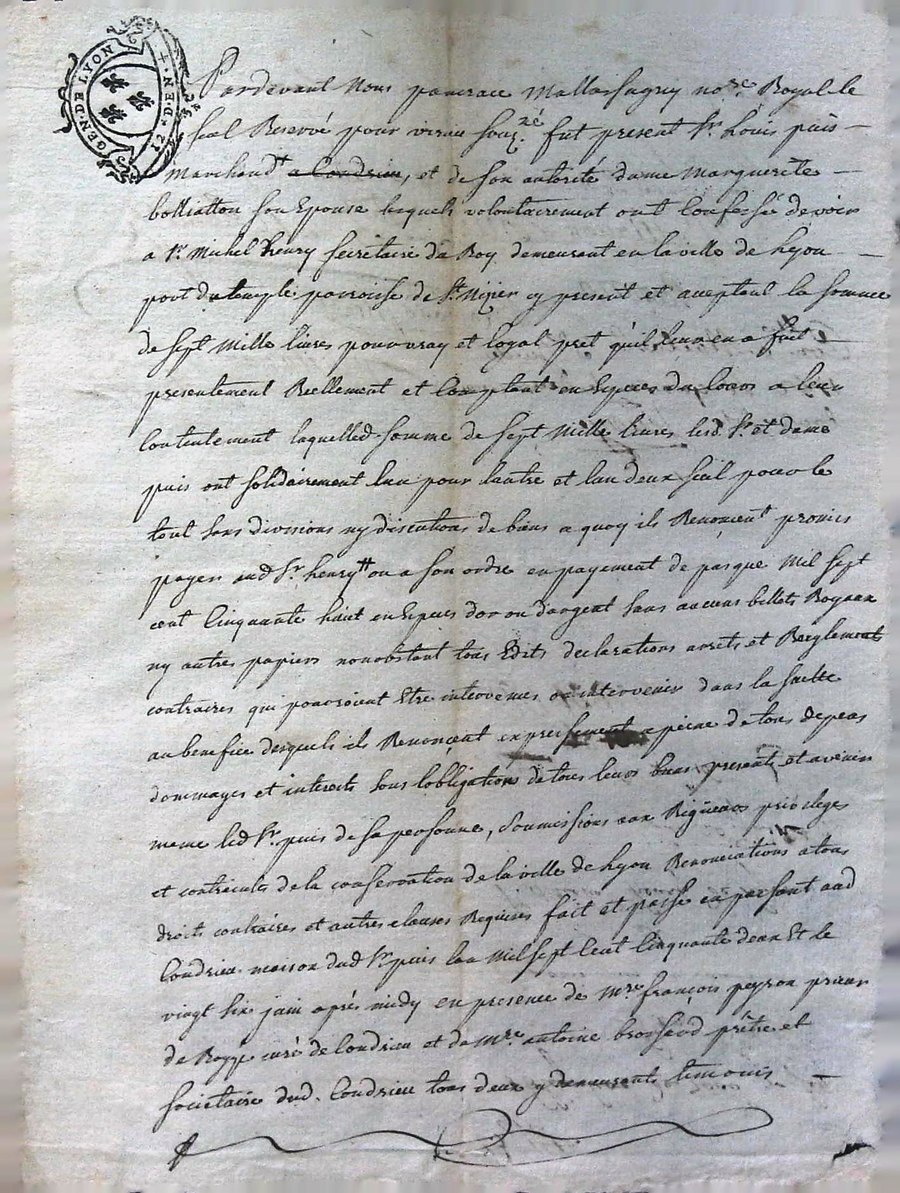 GEN·DE·LYON
12·DEN·
Pardevant Nous pancrace Mallassagny no.re Royal le
seul Reservé pour virieu souz.zé fut present Sr. Louis puis
Marchandt a Condrieu, et de son autorité dame Marguerite
son Epouse lesquels volontairement ont Confessé devoir
a Sr. Michel henry secretaire du Roy demeurant en la ville de Lyon
port du temple parroisse de St. Nizier y present et acceptant la somme
de sept Mille livres pour vray et loyal pret quil leur en a fait
presentement Reellement et Comptant en Especes du Cours a leur
Contentement laquelled. somme de sept Mille livres lesd. Sr. et dame
puis ont solidairement lun pour lautre et lun deux seul pour le
tout sans divisions ny discutions de biens a quoy ils Renoncent promis
payer aud Sr. henry ou a son ordre en payement de pasque Mil sept
cent Cinquante huit en Especes dor ou dargent sans aucuns billets Royaux
ny autres papiers nonobstant tous Edits declarations arrets et Reglements
contraires qui pourroient Etre intervenus ou intervenir dans la suitte
au benefice desquels ils Renoncent expressement a peine de tous depens
dommages et interets sous lobligation de tous leurs biens presents et avenir
meme led Sr. puis de sa personne, soumissions aux Rigueurs privileges
et contraintes de la conservation de la ville de Lyon Renonciations a tous
droits contraires et autres clauses Requises fait et passé en passant aud
Condrieu maison dud Sr. puis lan Mil sept Cent Cinquante deux Et le
vingt six juin aprés midy en presence de Mre. françois peyron prieur
de curé de Condrieu et de Mre. antoine prêtre et
societaire dud. Condrieu tous deux y demeurants temoins